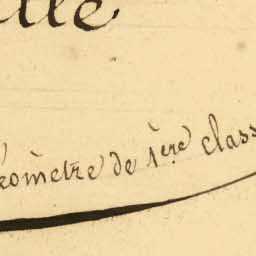 éomètre de 1ère class